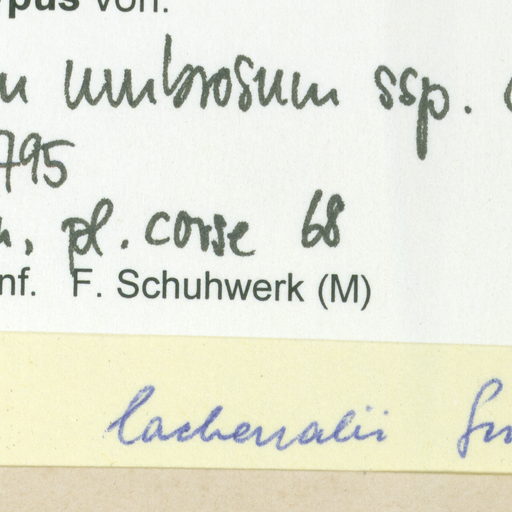 pus von:
umbrosum ssp.
795
, pl. corse 68
nf. F. Schuhwerk (M)
lachenalii Gm